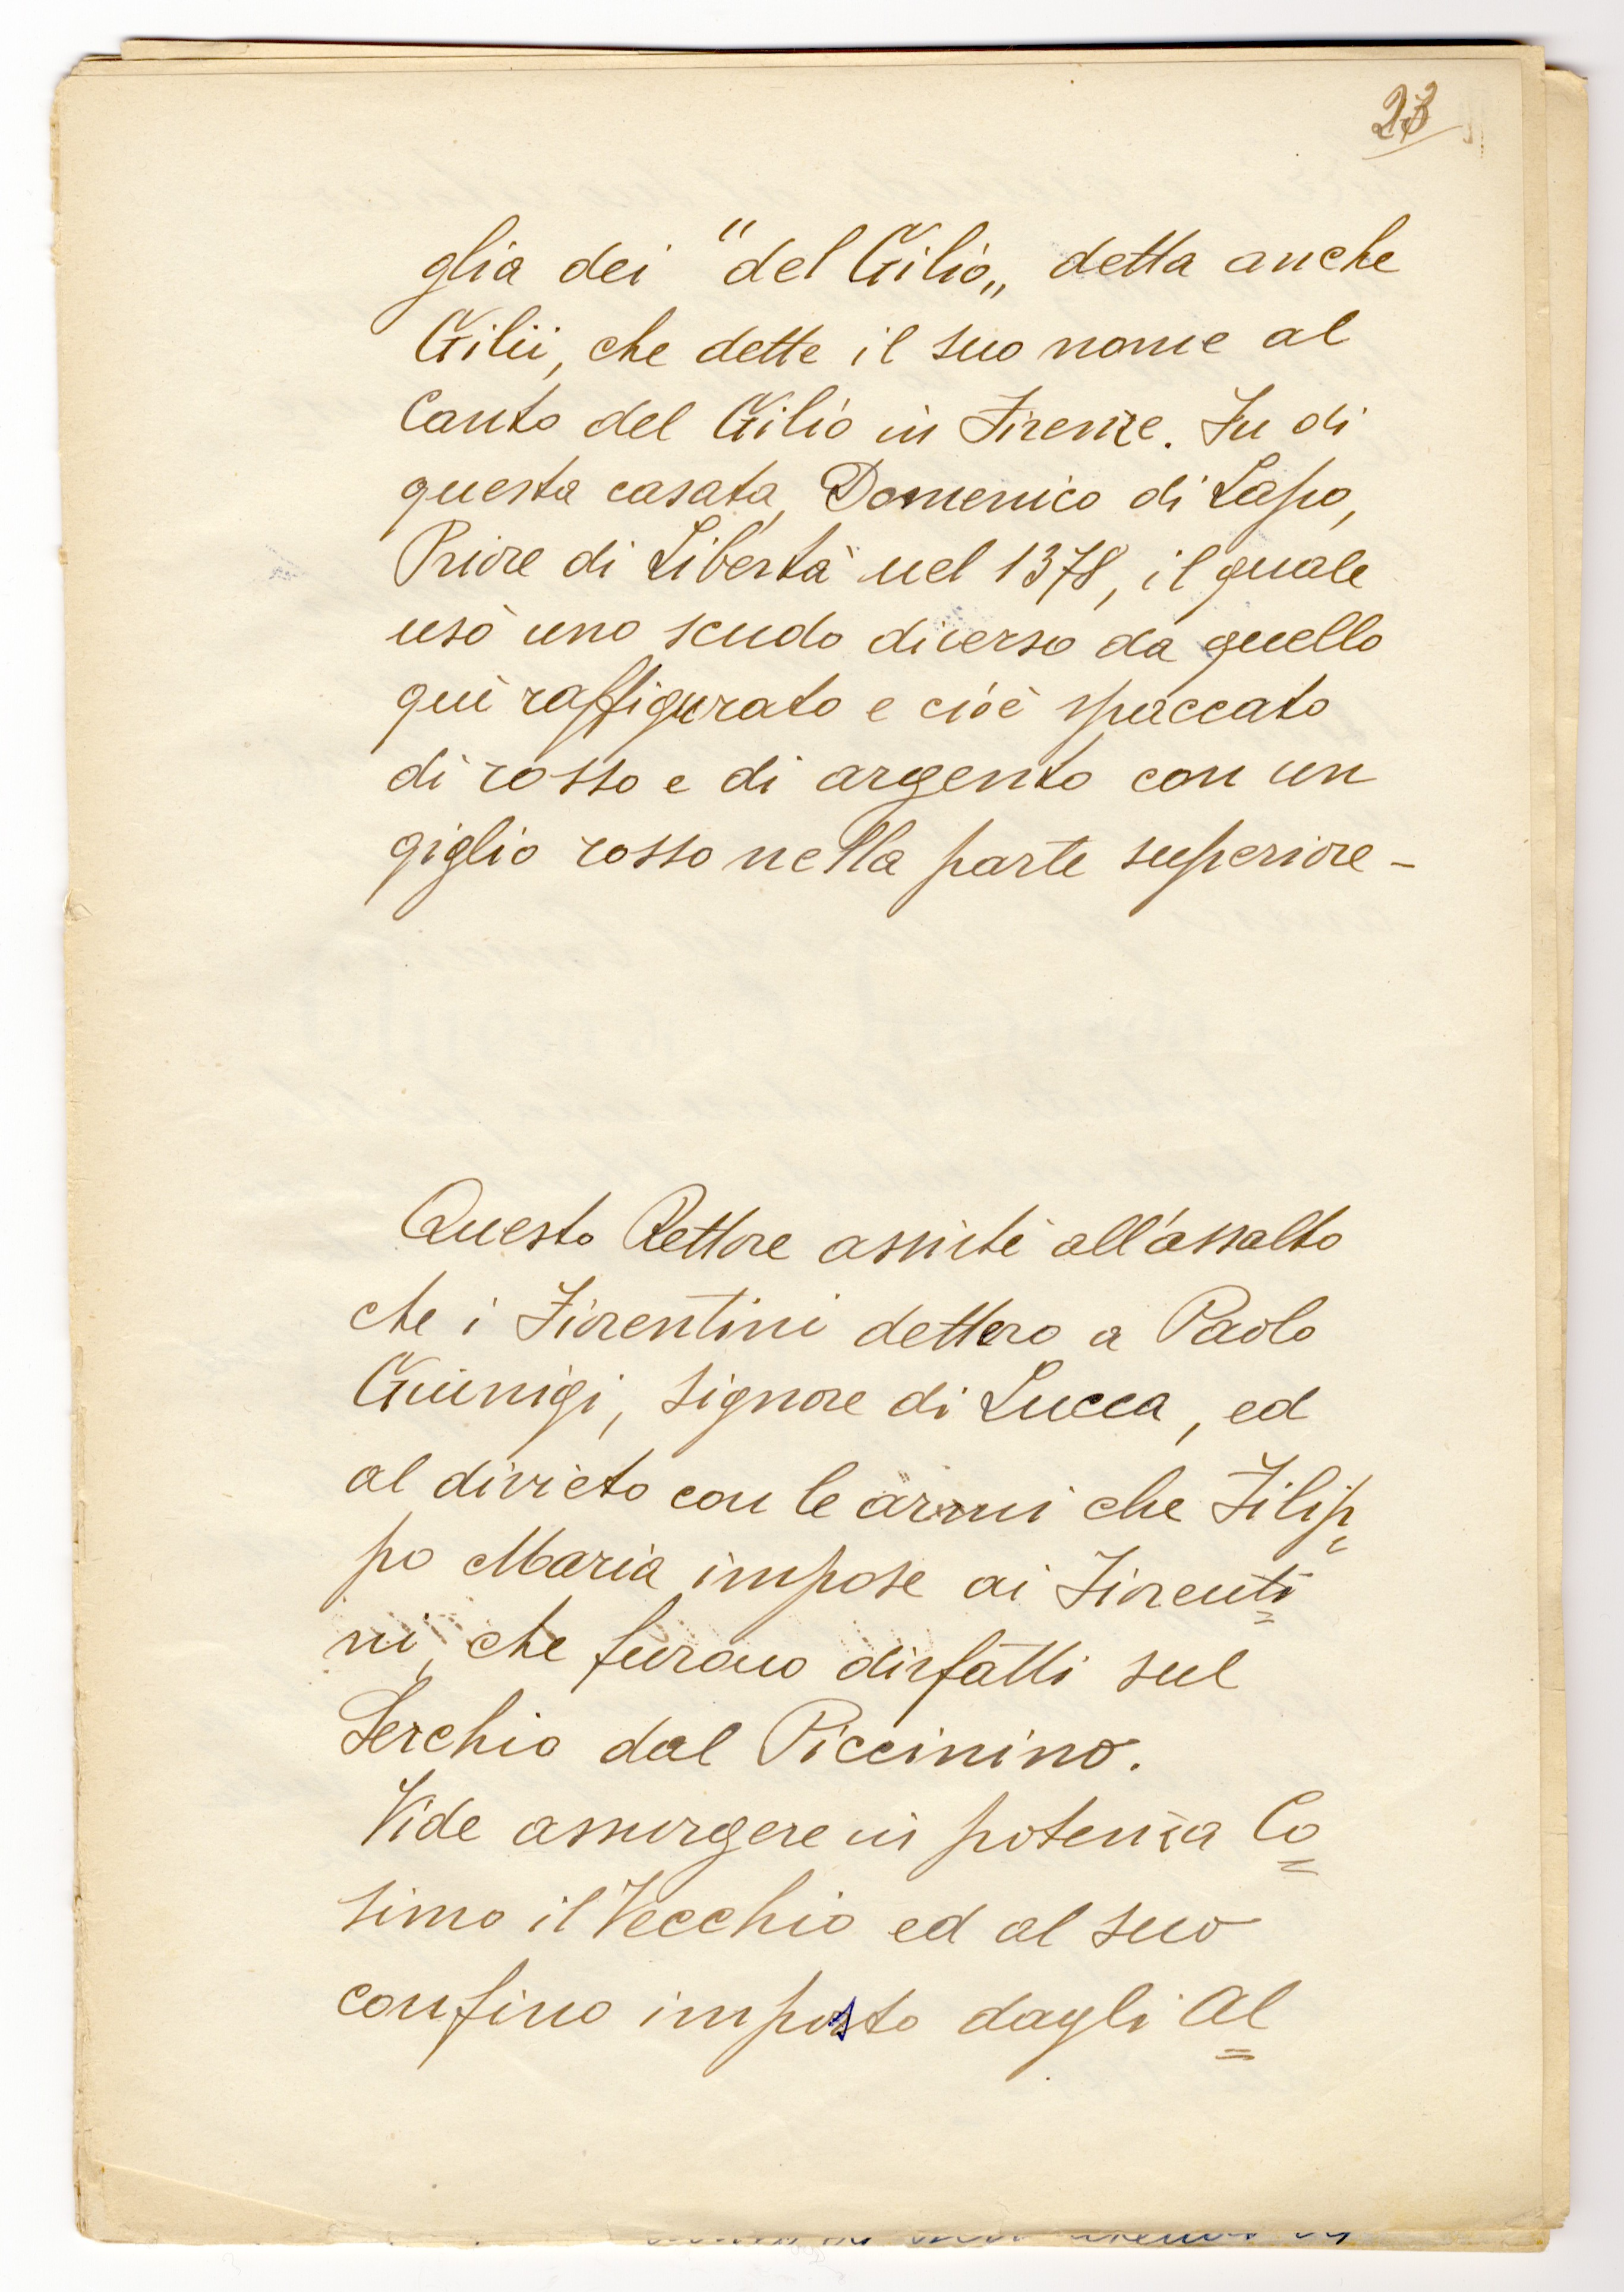 23
glia dei "del Giliò„ detta anche
Gilii, che dette il suo nome al
Canto del Giliò in Firenze. Fu di
questa casata, Domenico di Lapo,
Priore di Libertà nel 1378, il quale
usò uno scudo diverso da quello
quì raffigurato e cioè spaccato
di rosso e di argento con un
giglio rosso nella parte superiore -
Questo Rettore assistè all'assalto
che i Fiorentini dettero a Paolo
Guinigi, signore di Lucca, ed
al divieto con le armi che Filip=
po Maria impose ai Fiorenti=
ni, che furono disfatti sul
Serchio dal Piccinino.
Vide assurgere in potenza Co=
simo il Vecchio ed al suo
confino imposto dagli Al=